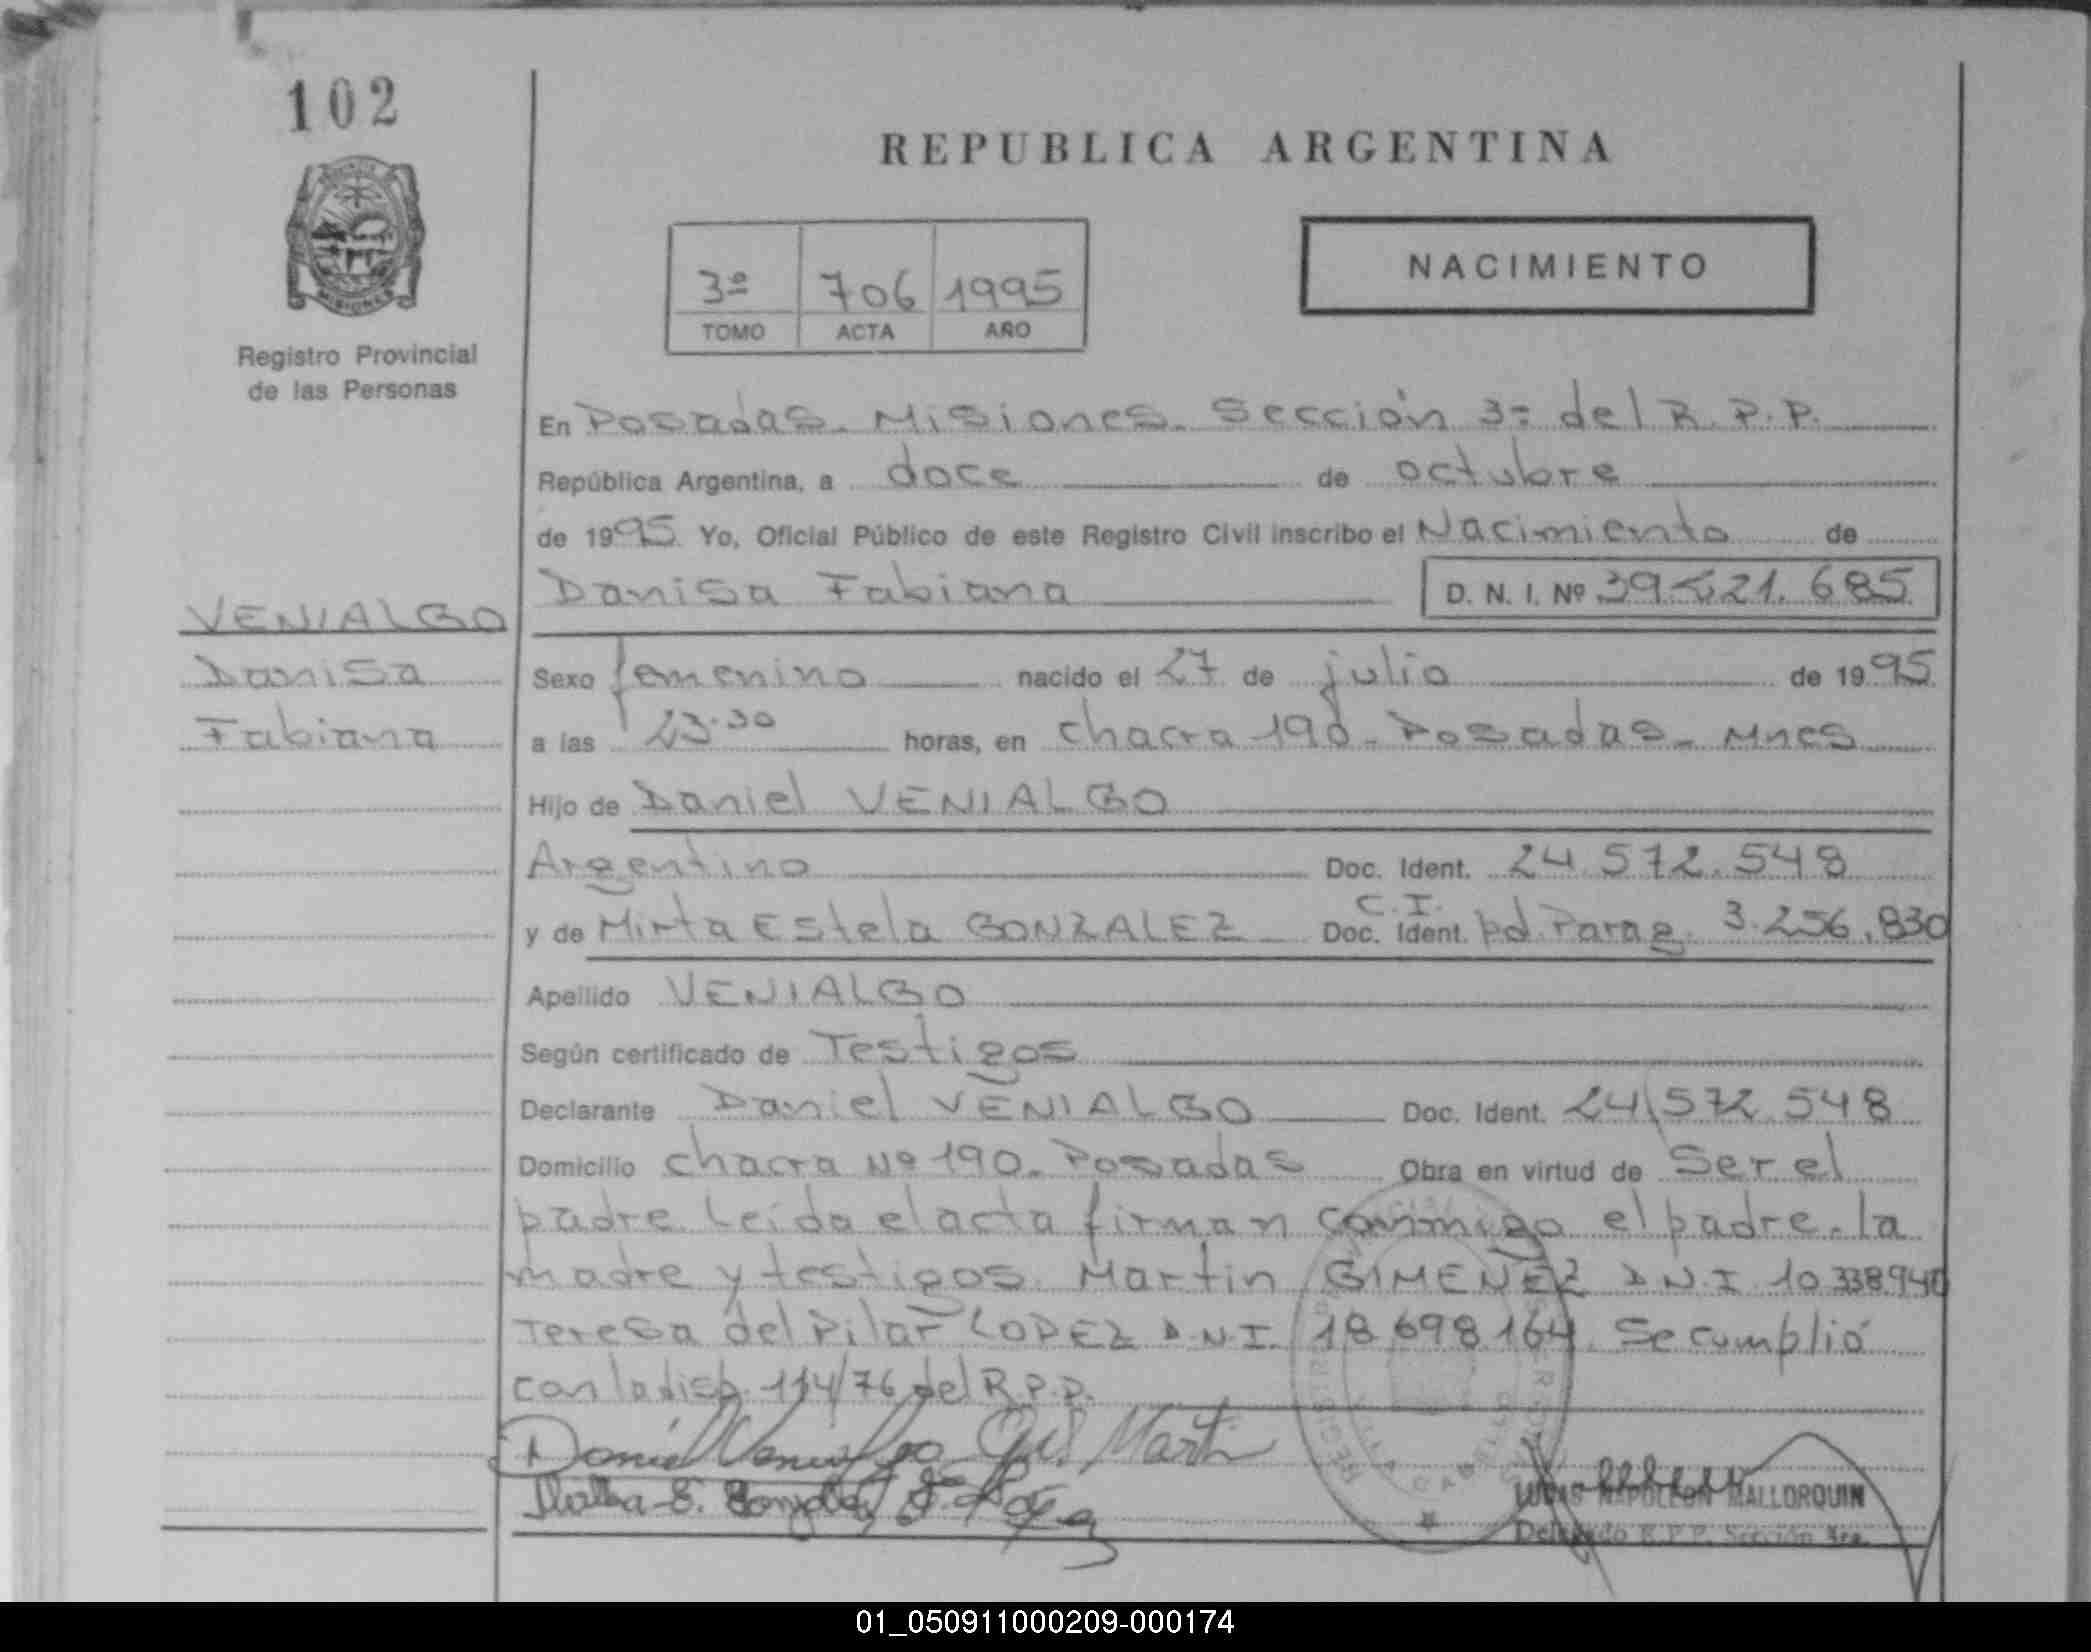 102
REPUBLICA ARGENTINA
NACIMIENTO
3º 706 1995
TOMO ACTA AÑO
MISIONES
Registro Provincial
de las Personas
En Posadas. Misiones. Sección 3= del R.P.P.
República Argentina, a doce de octubre
de 1995 Yo, Oficial Público de este Registro Civil inscribo el Nacimiento de
Danisa Fabiana D. N. I. Nº 39.221.685
VENIALGO
Danisa
Fabiana
Sexo femenino nacido el 27 de julio de 1995
a las 23.30 horas, en chacra 190. Posadas. Mnes
Hijo de Daniel VENIALGO
Argentino Doc. Ident. 24.572.548
C.I.
y de Mirta Estela GONZALEZ Doc. Ident. pol. Parag. 3.256.830
Apellido VENIALGO
Según certificado de Testigos
Declarante Daniel VENIALGO Doc. Ident. 24.572.548
Domicilio chacra Nº 190. Posadas Obra en virtud de Ser el
padre. Leída el acta firman conmigo el padre. la
madre y testigos. Martin GIMENEZ D.N.I 10.338.940
Teresa del Pilar LOPEZ D.N.I. 18.698.164. Se cumplió
con la disp. 114/76 del R.P.P.
Daniel Venialgo Martin
LUCAS NAPOLEON MALLORQUIN
Delegado R.P.P. Sección 3ra.
01_050911000209-000174